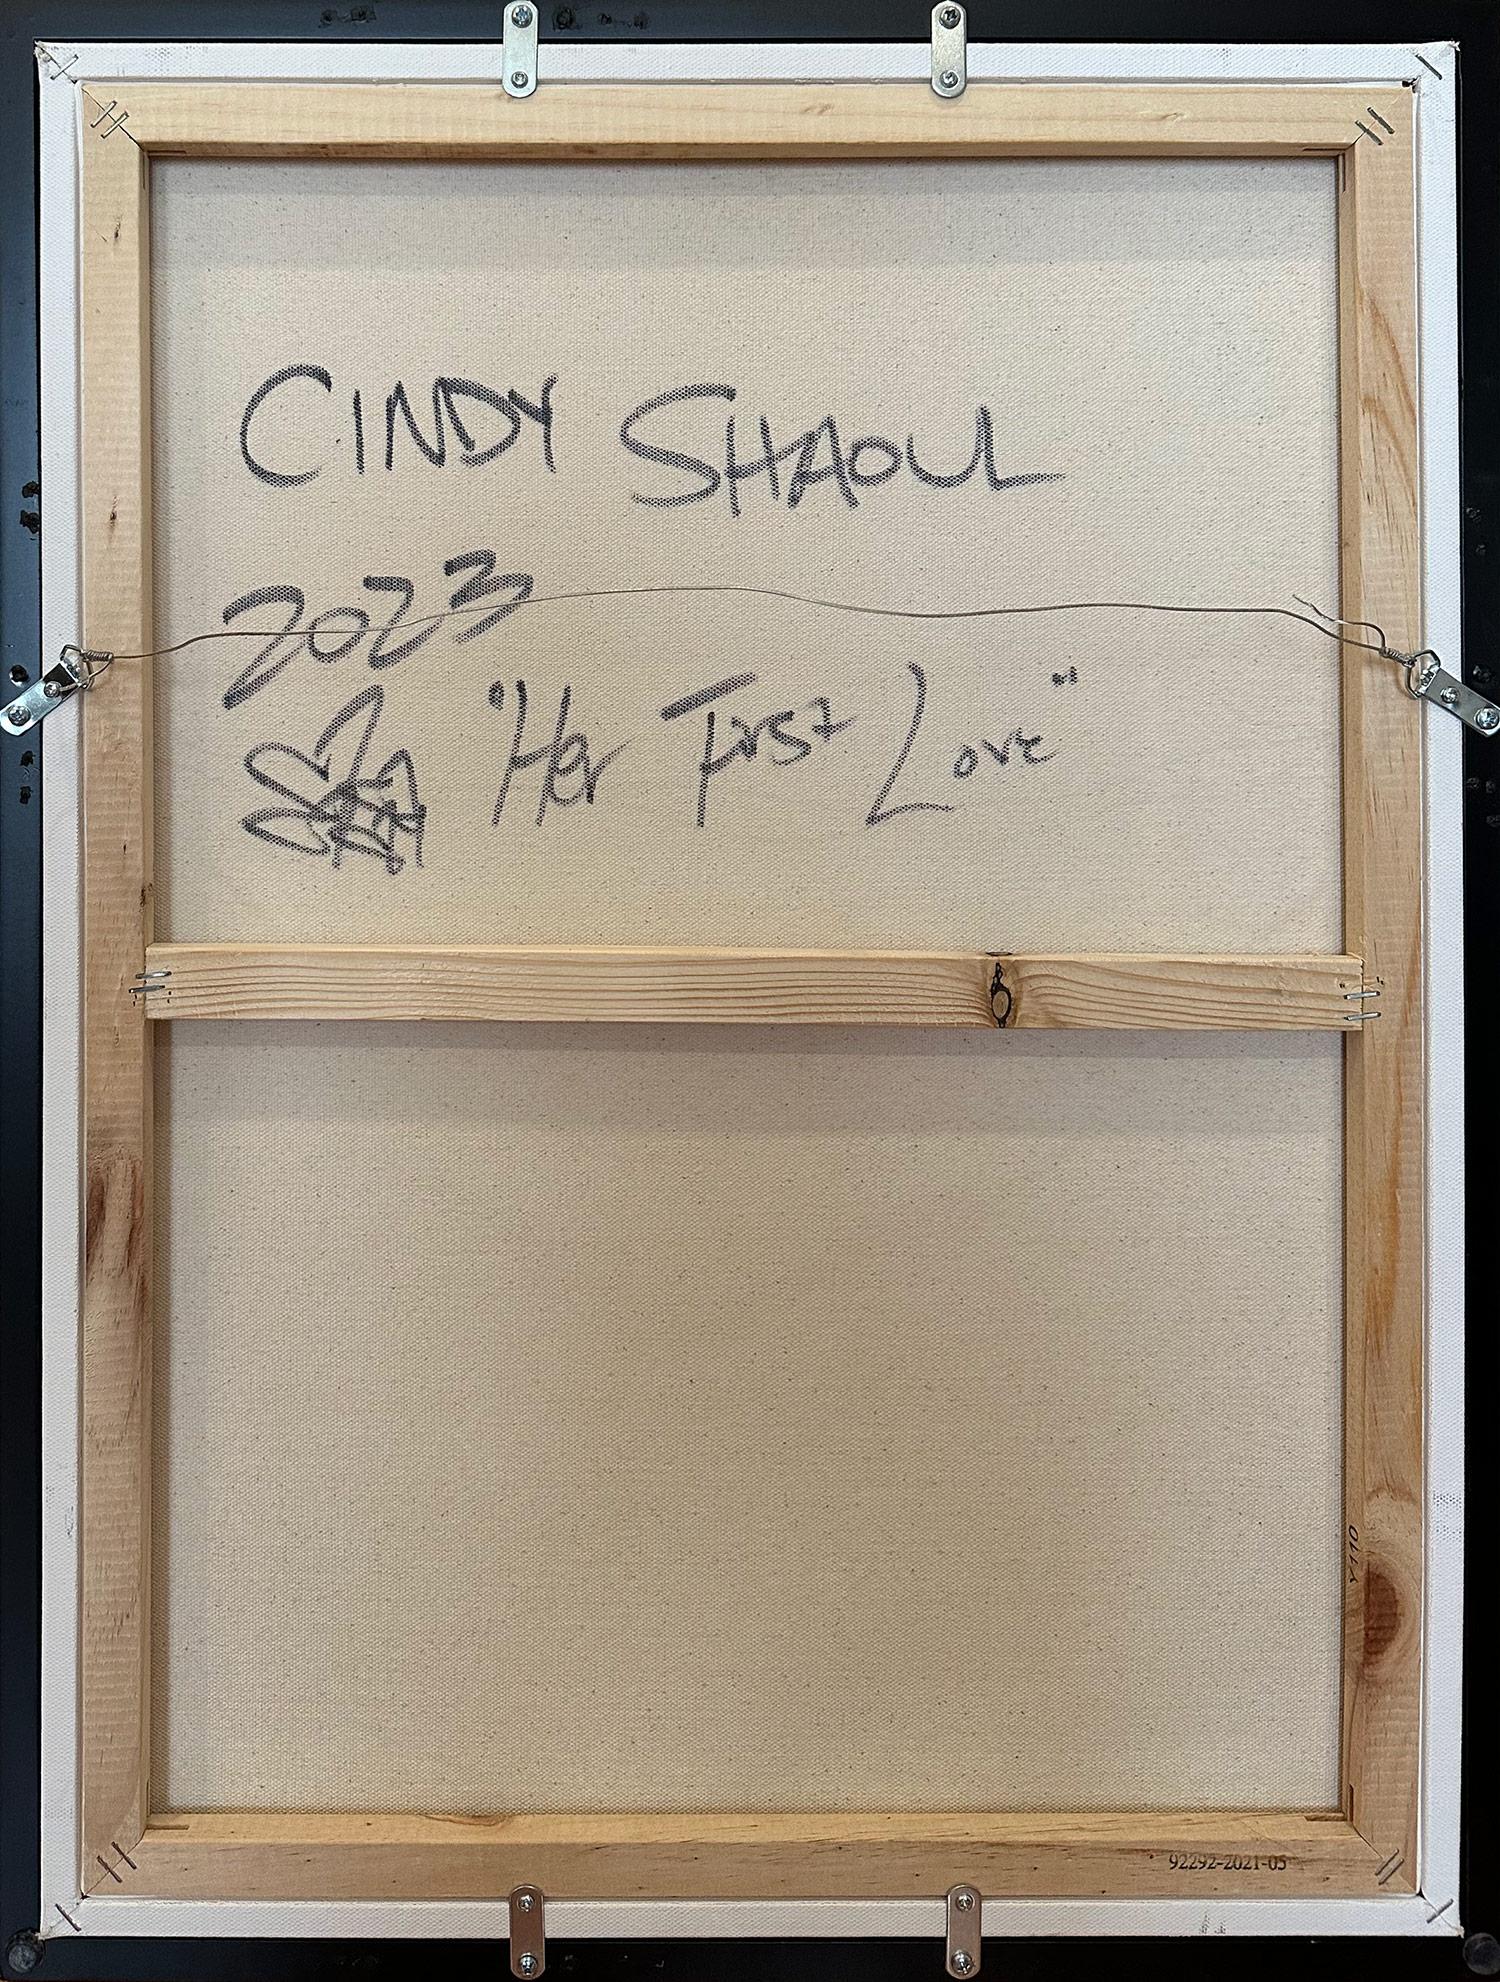 CINDY SHAOUL
2023
"Her First Love"
0110
92292-2021-05